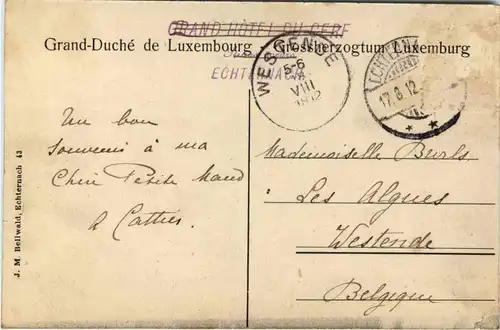 GRAND HÔTEL DU CERF
Grand-Duché de Luxembourg - Grossherzogtum Luxemburg
ECHTERNACH
WESTENDE
5-6
VIII
1912
ECHTERNACH
17.8.12
Un bon
souvenir à ma
Chère Petite Maud
Mademoiselle
Les Algues
Westende
Belgique
J. M. Bellwald, Echternach 43